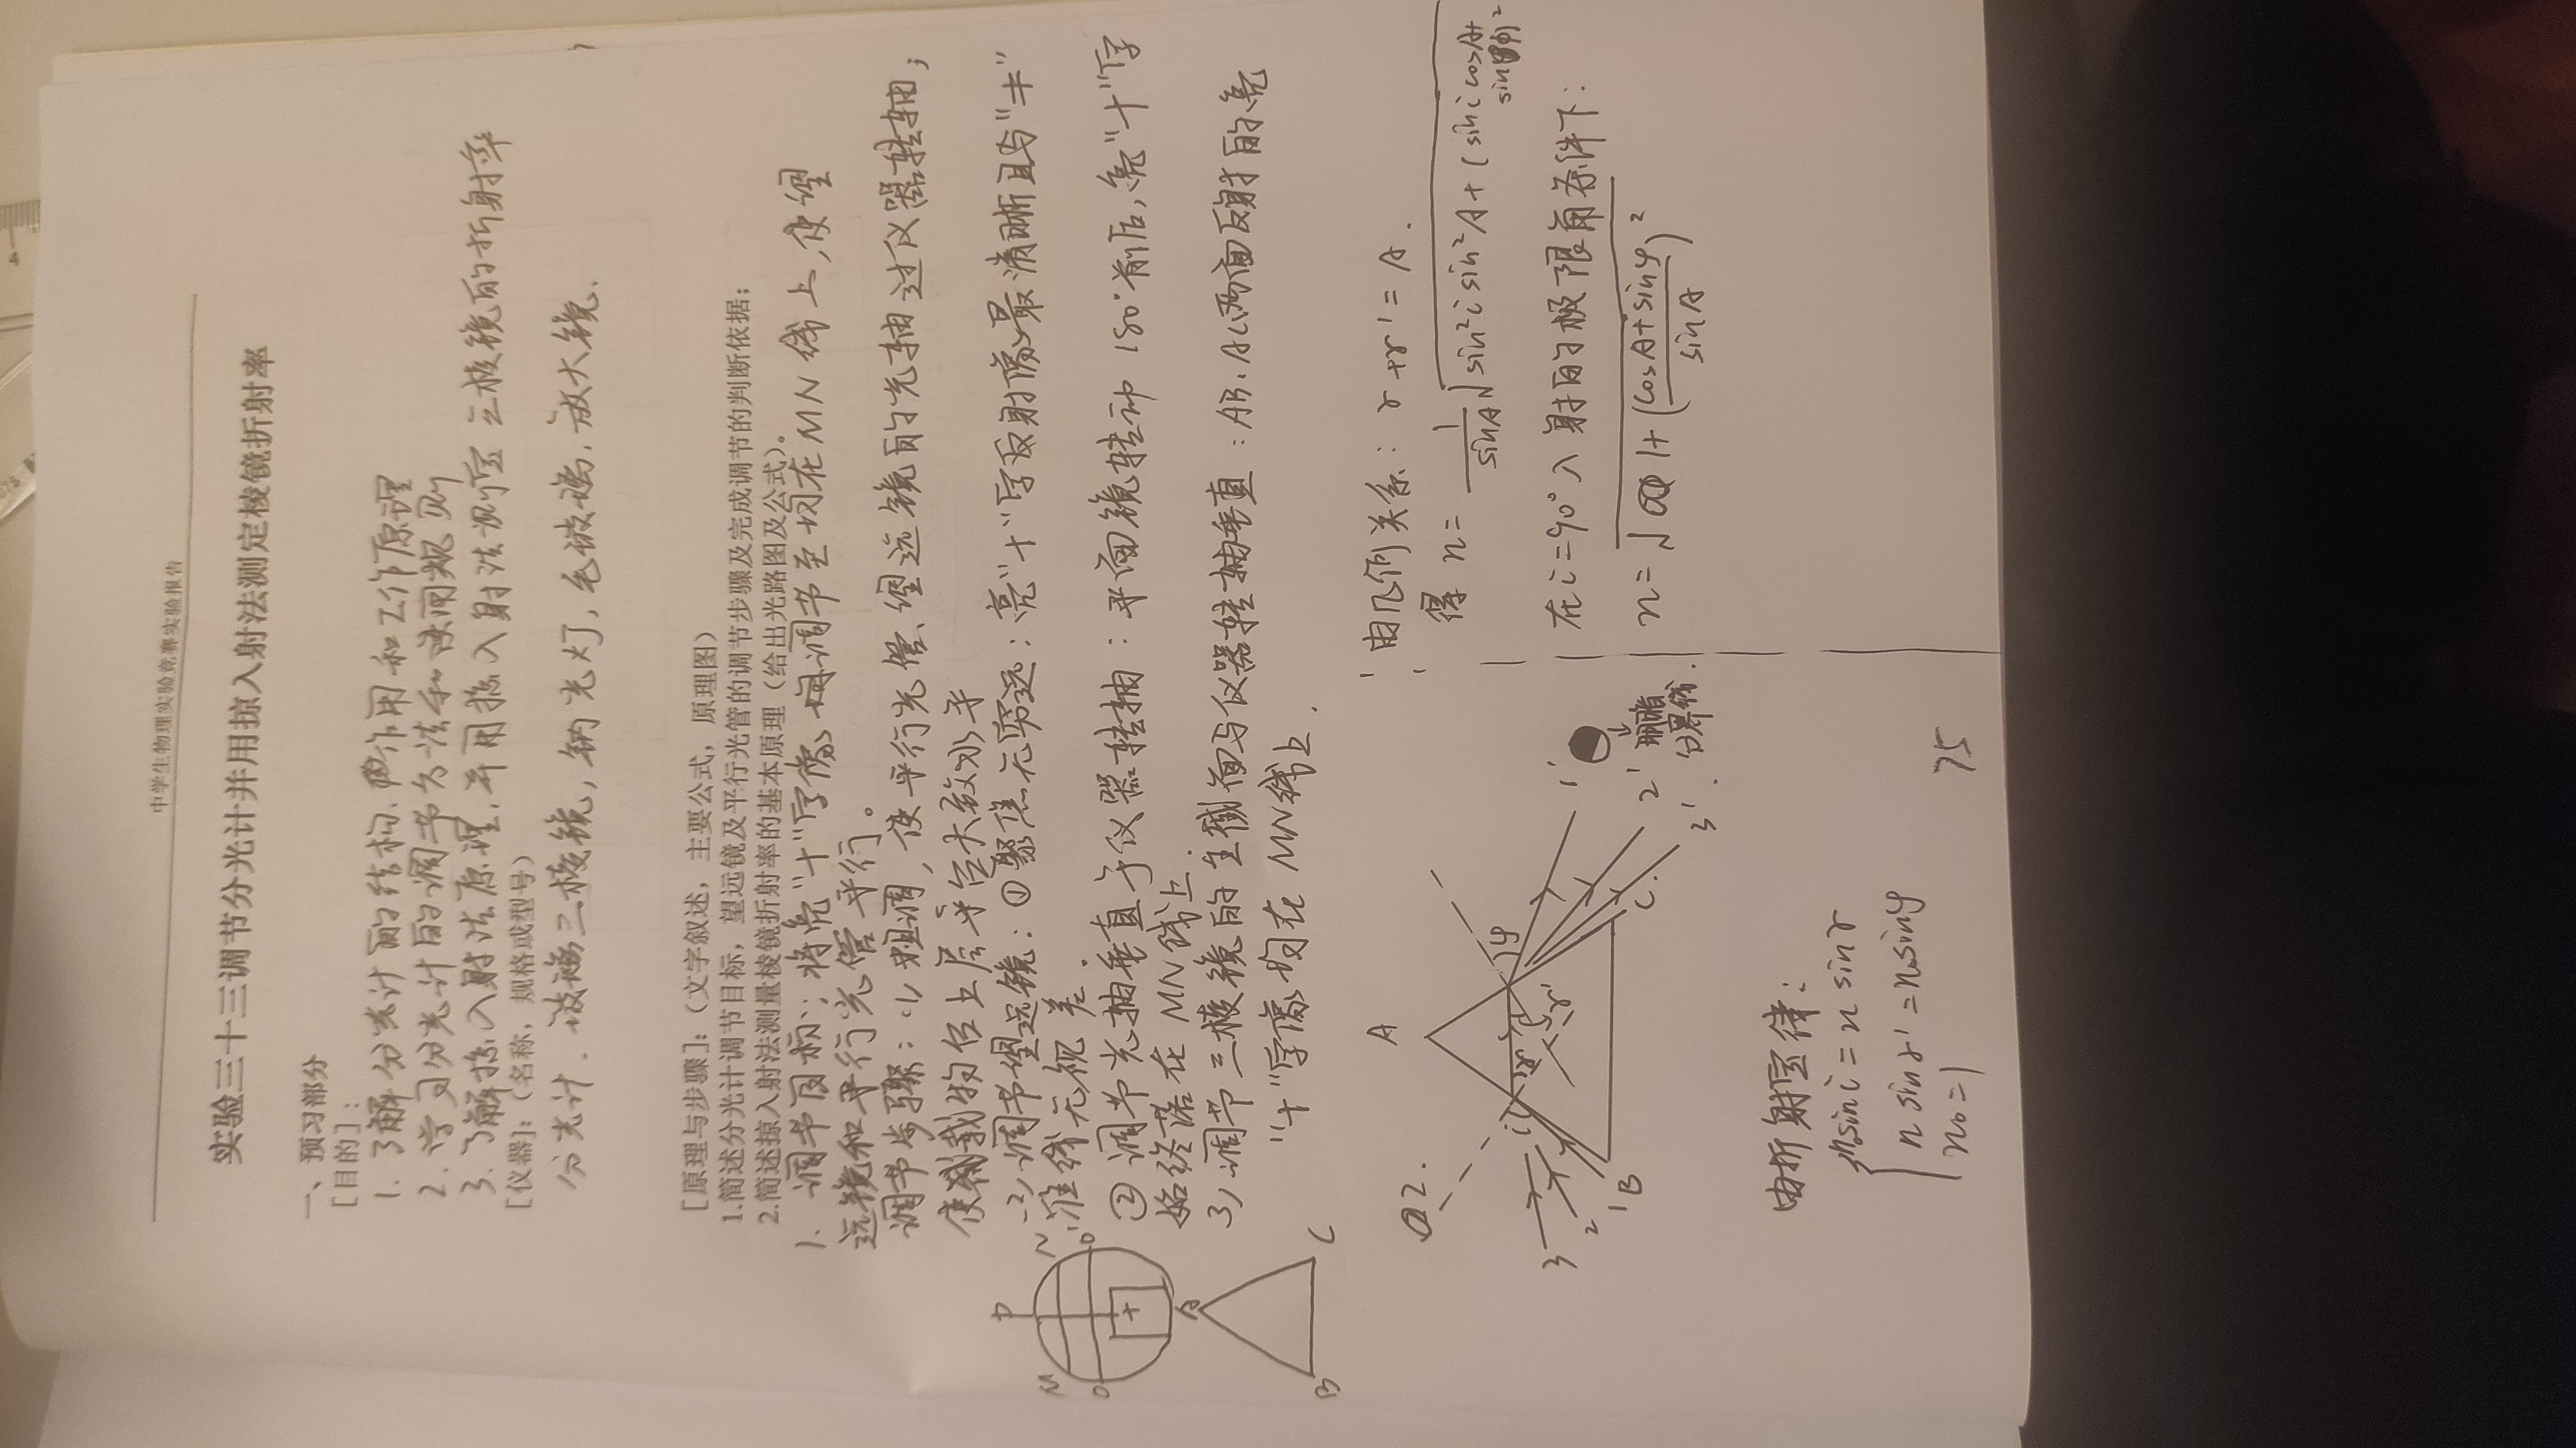 中学生物理实验竞赛实验报告
实验三十三调节分光计并用掠入射法测定棱镜折射率
一、预习部分
[目的]：
1. 了解分光计的结构、作用和工作原理
2. 学习分光计的调节方法和读润规则
3. 了解掠入射法原理，并用掠入射法测定三棱镜的折射率
[仪器]：（名称，规格或型号）
分光计、玻璃三棱镜，钠光灯，毛玻璃，放大镜、
[原理与步骤]：（文字叙述，主要公式，原理图）
1.简述分光计调节目标，望远镜及平行光管的调节步骤及完成调节的判断依据；
2.简述掠入射法测量棱镜折射率的基本原理（给出光路图及公式）。
1. 调节目标：将亮"十"字像调节至均在MN线上，使望
远镜和平行光管平行。
调节步骤：(1) 粗调，使平行光管、望远镜的光轴过仪器转轴；
使载物台上层平台大致水平
(2) 调节望远镜：①聚焦无穷远：亮"十"字反射像最清晰且与"丰"
准线无视差.
②调节光轴垂直于仪器转轴：平面镜转动180°前后，亮"十"字
始终落在MN线上.
3) 调节三棱镜的主截面与仪器转轴垂直：AB、AC两面反射的亮
"十"字像均在MN线上.
P
M N
O O'
A
B C
2.
A
i r r' φ
3 2 1 B C
1' 2' 3'
明暗
分界线
由折射定律：
n₀sin i = n sin r
n sin r' = n₀sinφ
n₀ = 1
由几何关系：r + r' = A.
得 n = 1/sinA √(sin²i sin²A + (sin i cosA + sinφ)²
在 i = 90° 入射的极限角条件下：
n = √(1 + ((cosA + sinφ)/sinA)²)
75